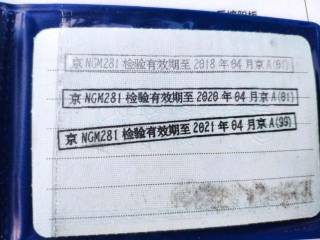 京 NGM281 检验有效期至 2018 年 04 月京 A(07)
京 NGM281 检验有效期至 2020 年 04 月京 A(01)
京 NGM281 检验有效期至 2021 年 04 月京 A(99)